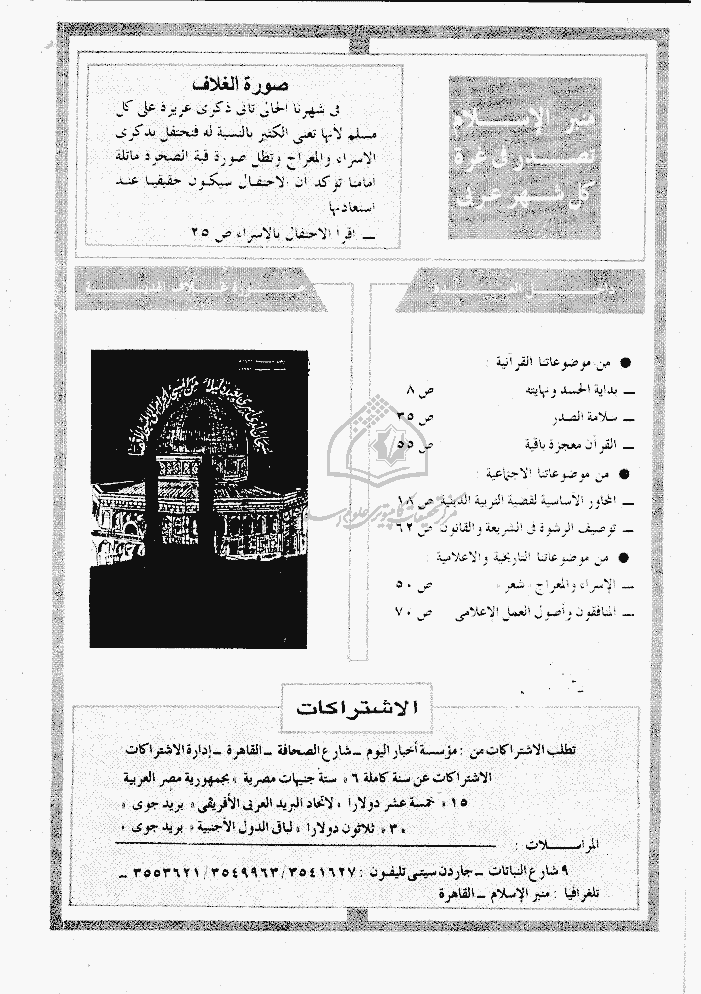 منبر الإسلام
تصدر فى غرة
كل شهر عربى
صورة الغلاف
فى شهرنا الحالى تأتى ذكرى عزيزة على كل
مسلم لأنها تعنى الكثير بالنسبة له فنحتفل بذكرى
الاسراء والمعراج وتظل صورة قبة الصخرة ماثلة
امامنا تؤكد ان الاحتفال سيكون حقيقيا عند
استعادتها
ــ اقرأ الاحتفال بالاسراء ص ٢٥
داخل العدد
● من موضوعاتنا القرآنية :
ــ بداية الحسد ونهايته ص ٨
ــ سلامة الصدر ص ٣٥
ــ القرآن معجزة باقية ص ٥٥
● من موضوعاتنا الاجتماعية :
ــ المحاور الاساسية لقضية التربية الدينية ص ١٨
ــ توصيف الرشوة فى الشريعة والقانون ص ٦٢
● من موضوعاتنا التاريخية والاعلامية :
ــ الإسراء والمعراج « شعر » ص ٥٠
ــ المنافقون وأصول العمل الاعلامى ص ٧٠
الاشتراكات
تطلب الاشتراكات من : مؤسسة أخبار اليوم ــ شارع الصحافة ــ القاهرة ــ إدارة الاشتراكات
الاشتراكات عن سنة كاملة ٦ « ستة جنيهات مصرية » بجمهورية مصر العربية
١٥ « خمسة عشر دولارا » لاتحاد البريد العربى الأفريقى « بريد جوى »
٣٠ « ثلاثون دولارا » لباقى الدول الأجنبية « بريد جوى »
المراسلات :
٩ شارع النباتات ــ جاردن سيتى تليفون : ٣٥٤١٦٢٧ / ٣٥٤٩٩٦٣ / ٣٥٥٣٦٢١ ــ
تلغرافيا : منبر الإسلام ــ القاهرة